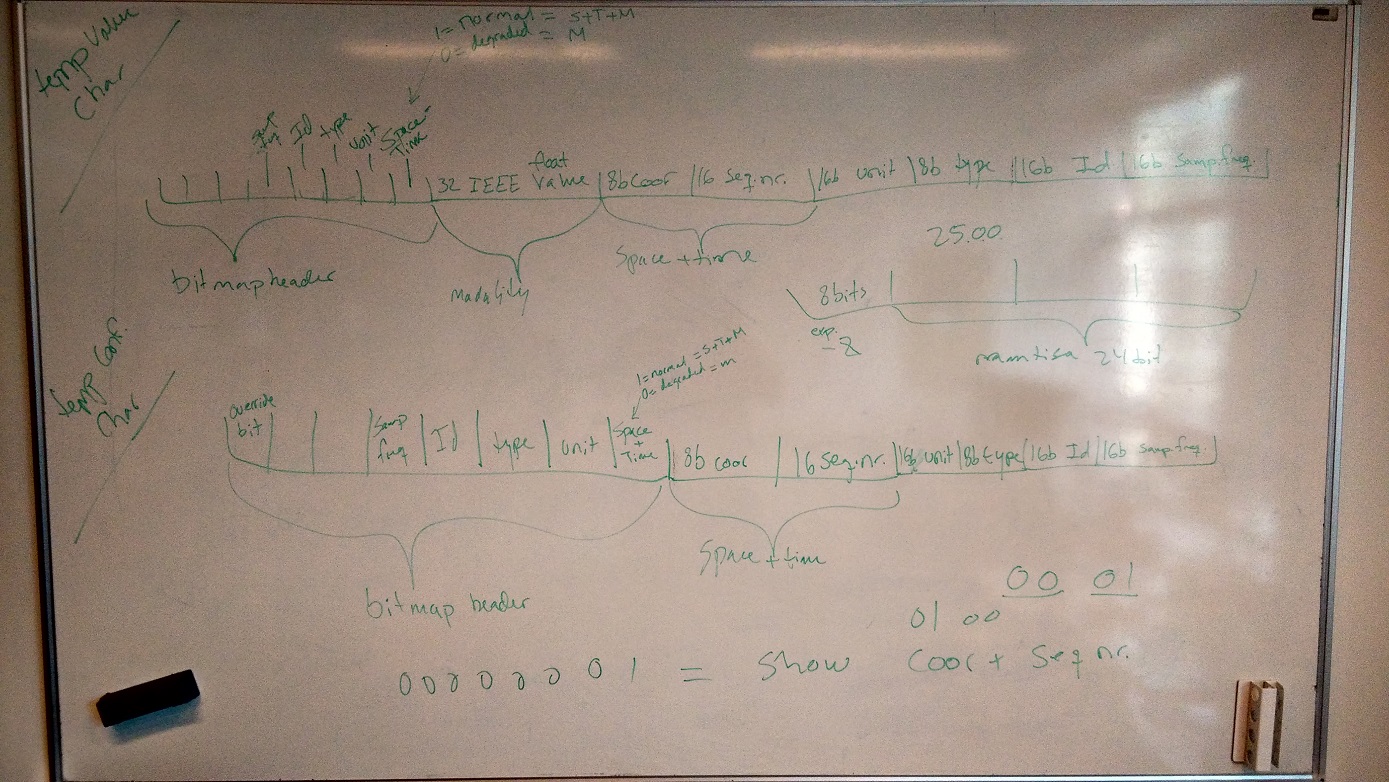 temp Value
Char
1 = normal = S+T+M
0 = degraded = M
Samp frq Id type unit Space+ Time
32 IEEE float Value | 8b Coor | 16 Seq.nr. | 16b unit | 8b type | 16b Id | 16b Samp.freq.
bitmapheader
Modality
Space + time
25.00
8 bits
exp.
-8
mamtisa 24 bit
temp Conf.
Char
1 = normal = S+T+M
0 = degraded = m
override bit
Samp freq | Id | type | unit | Space + Time | 8b coor | 16 Seq.nr. | 16b unit | 8b type | 16b Id | 16b Samp.freq.
bitmap header
Space + time
00 01
01 00
00000001 = Show Coor + Seq nr.